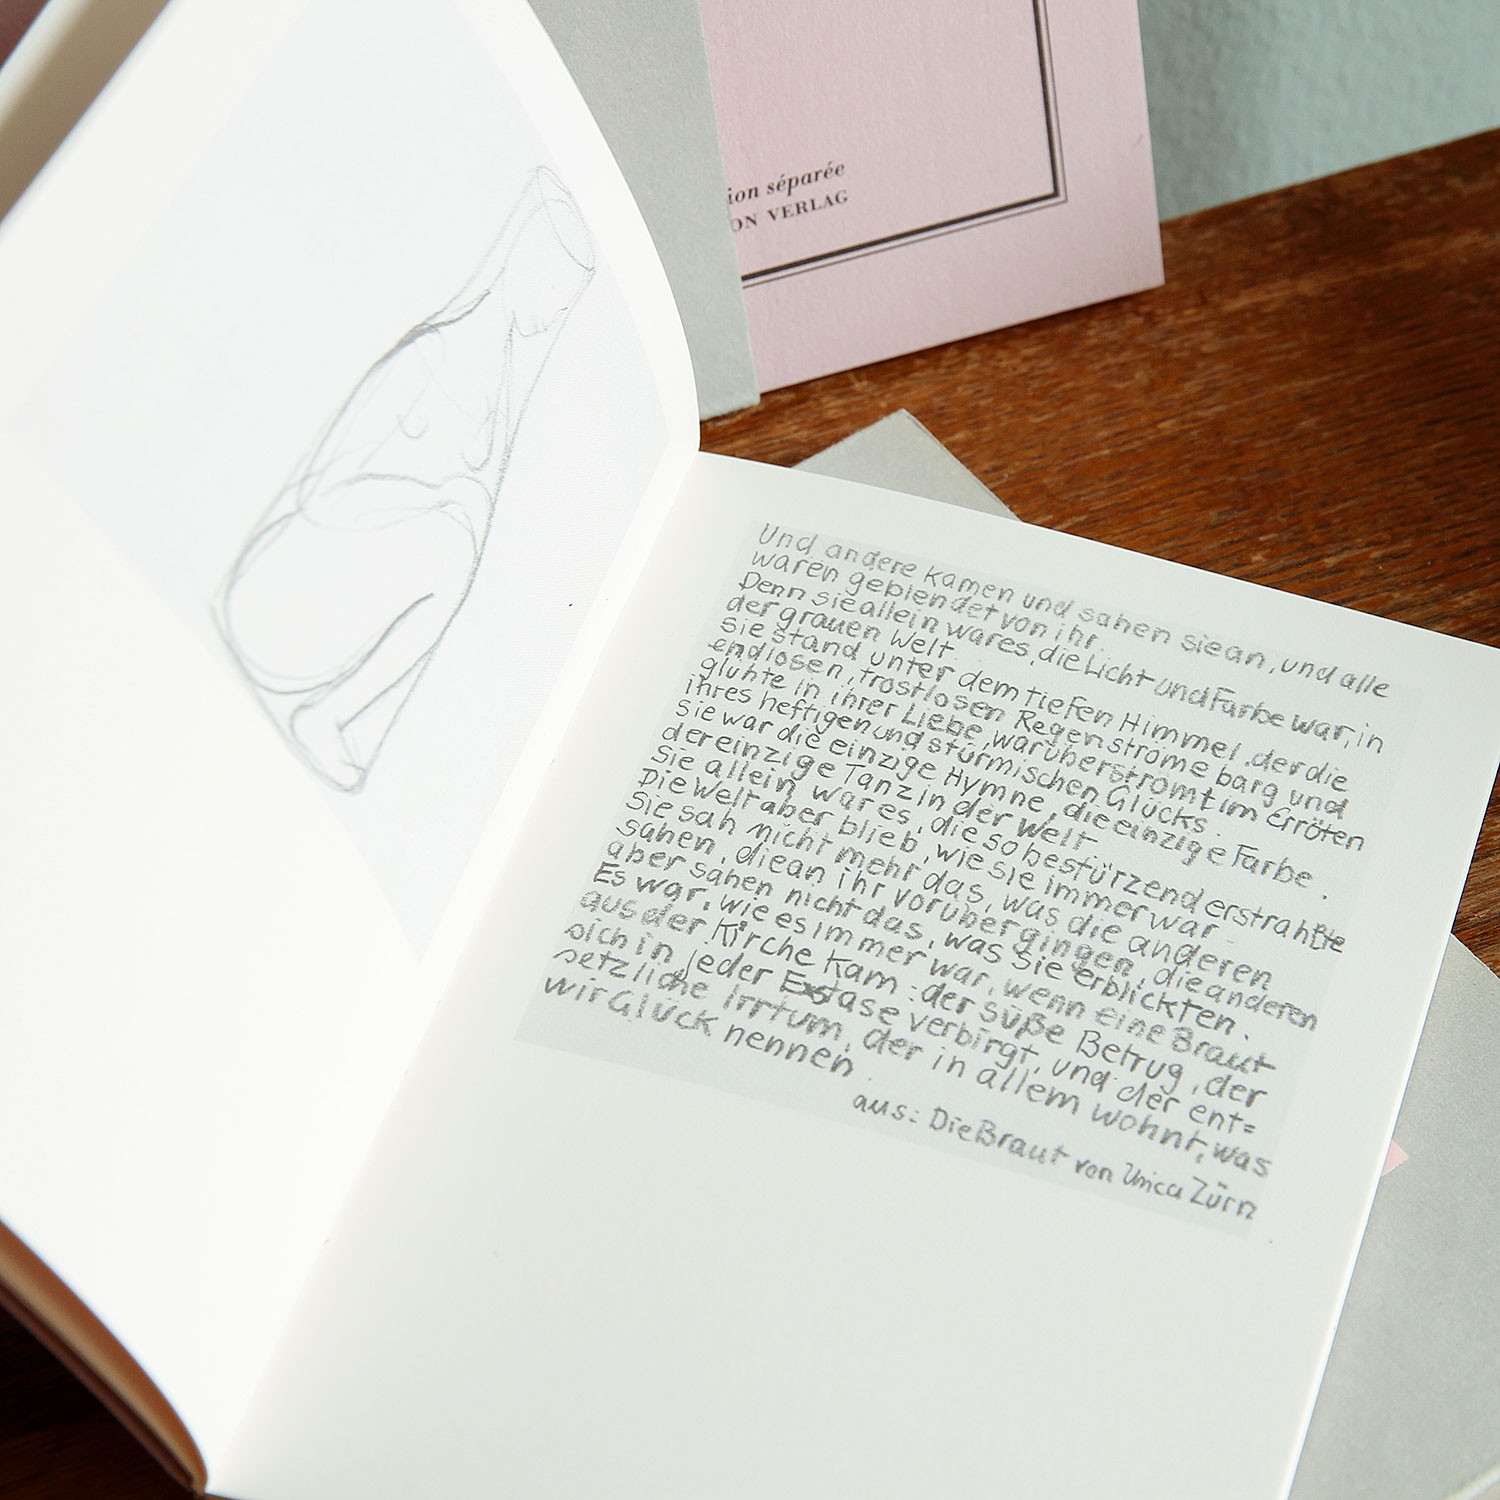 ion séparée
ON VERLAG
Und andere kamen und sahen sie an, und alle
waren geblendet von ihr.
Denn sie allein war es, die Licht und Farbe war, in
der grauen Welt.
Sie stand unter dem tiefen Himmel, der die
endlosen, trostlosen Regenströme barg und
glühte in ihrer Liebe, war überströmt im Erröten
ihres heftigen und stürmischen Glücks.
Sie war die einzige Hymne, die einzige Farbe.
der einzige Tanz in der Welt
Sie allein war es, die so bestürzend erstrahlte
Die Welt aber blieb, wie sie immer war.
Sie sah nicht mehr das, was die anderen
sahen, die an ihr vorübergingen, die anderen
aber sahen nicht das, was Sie erblickten.
Es war, wie es immer war, wenn eine Braut
aus der Kirche kam: der süße Betrug, der
sich in jeder Extase verbirgt, und der ent=
setzliche Irrtum, der in allem wohnt, was
wir Glück nennen.
aus: Die Braut von Unica Zürn